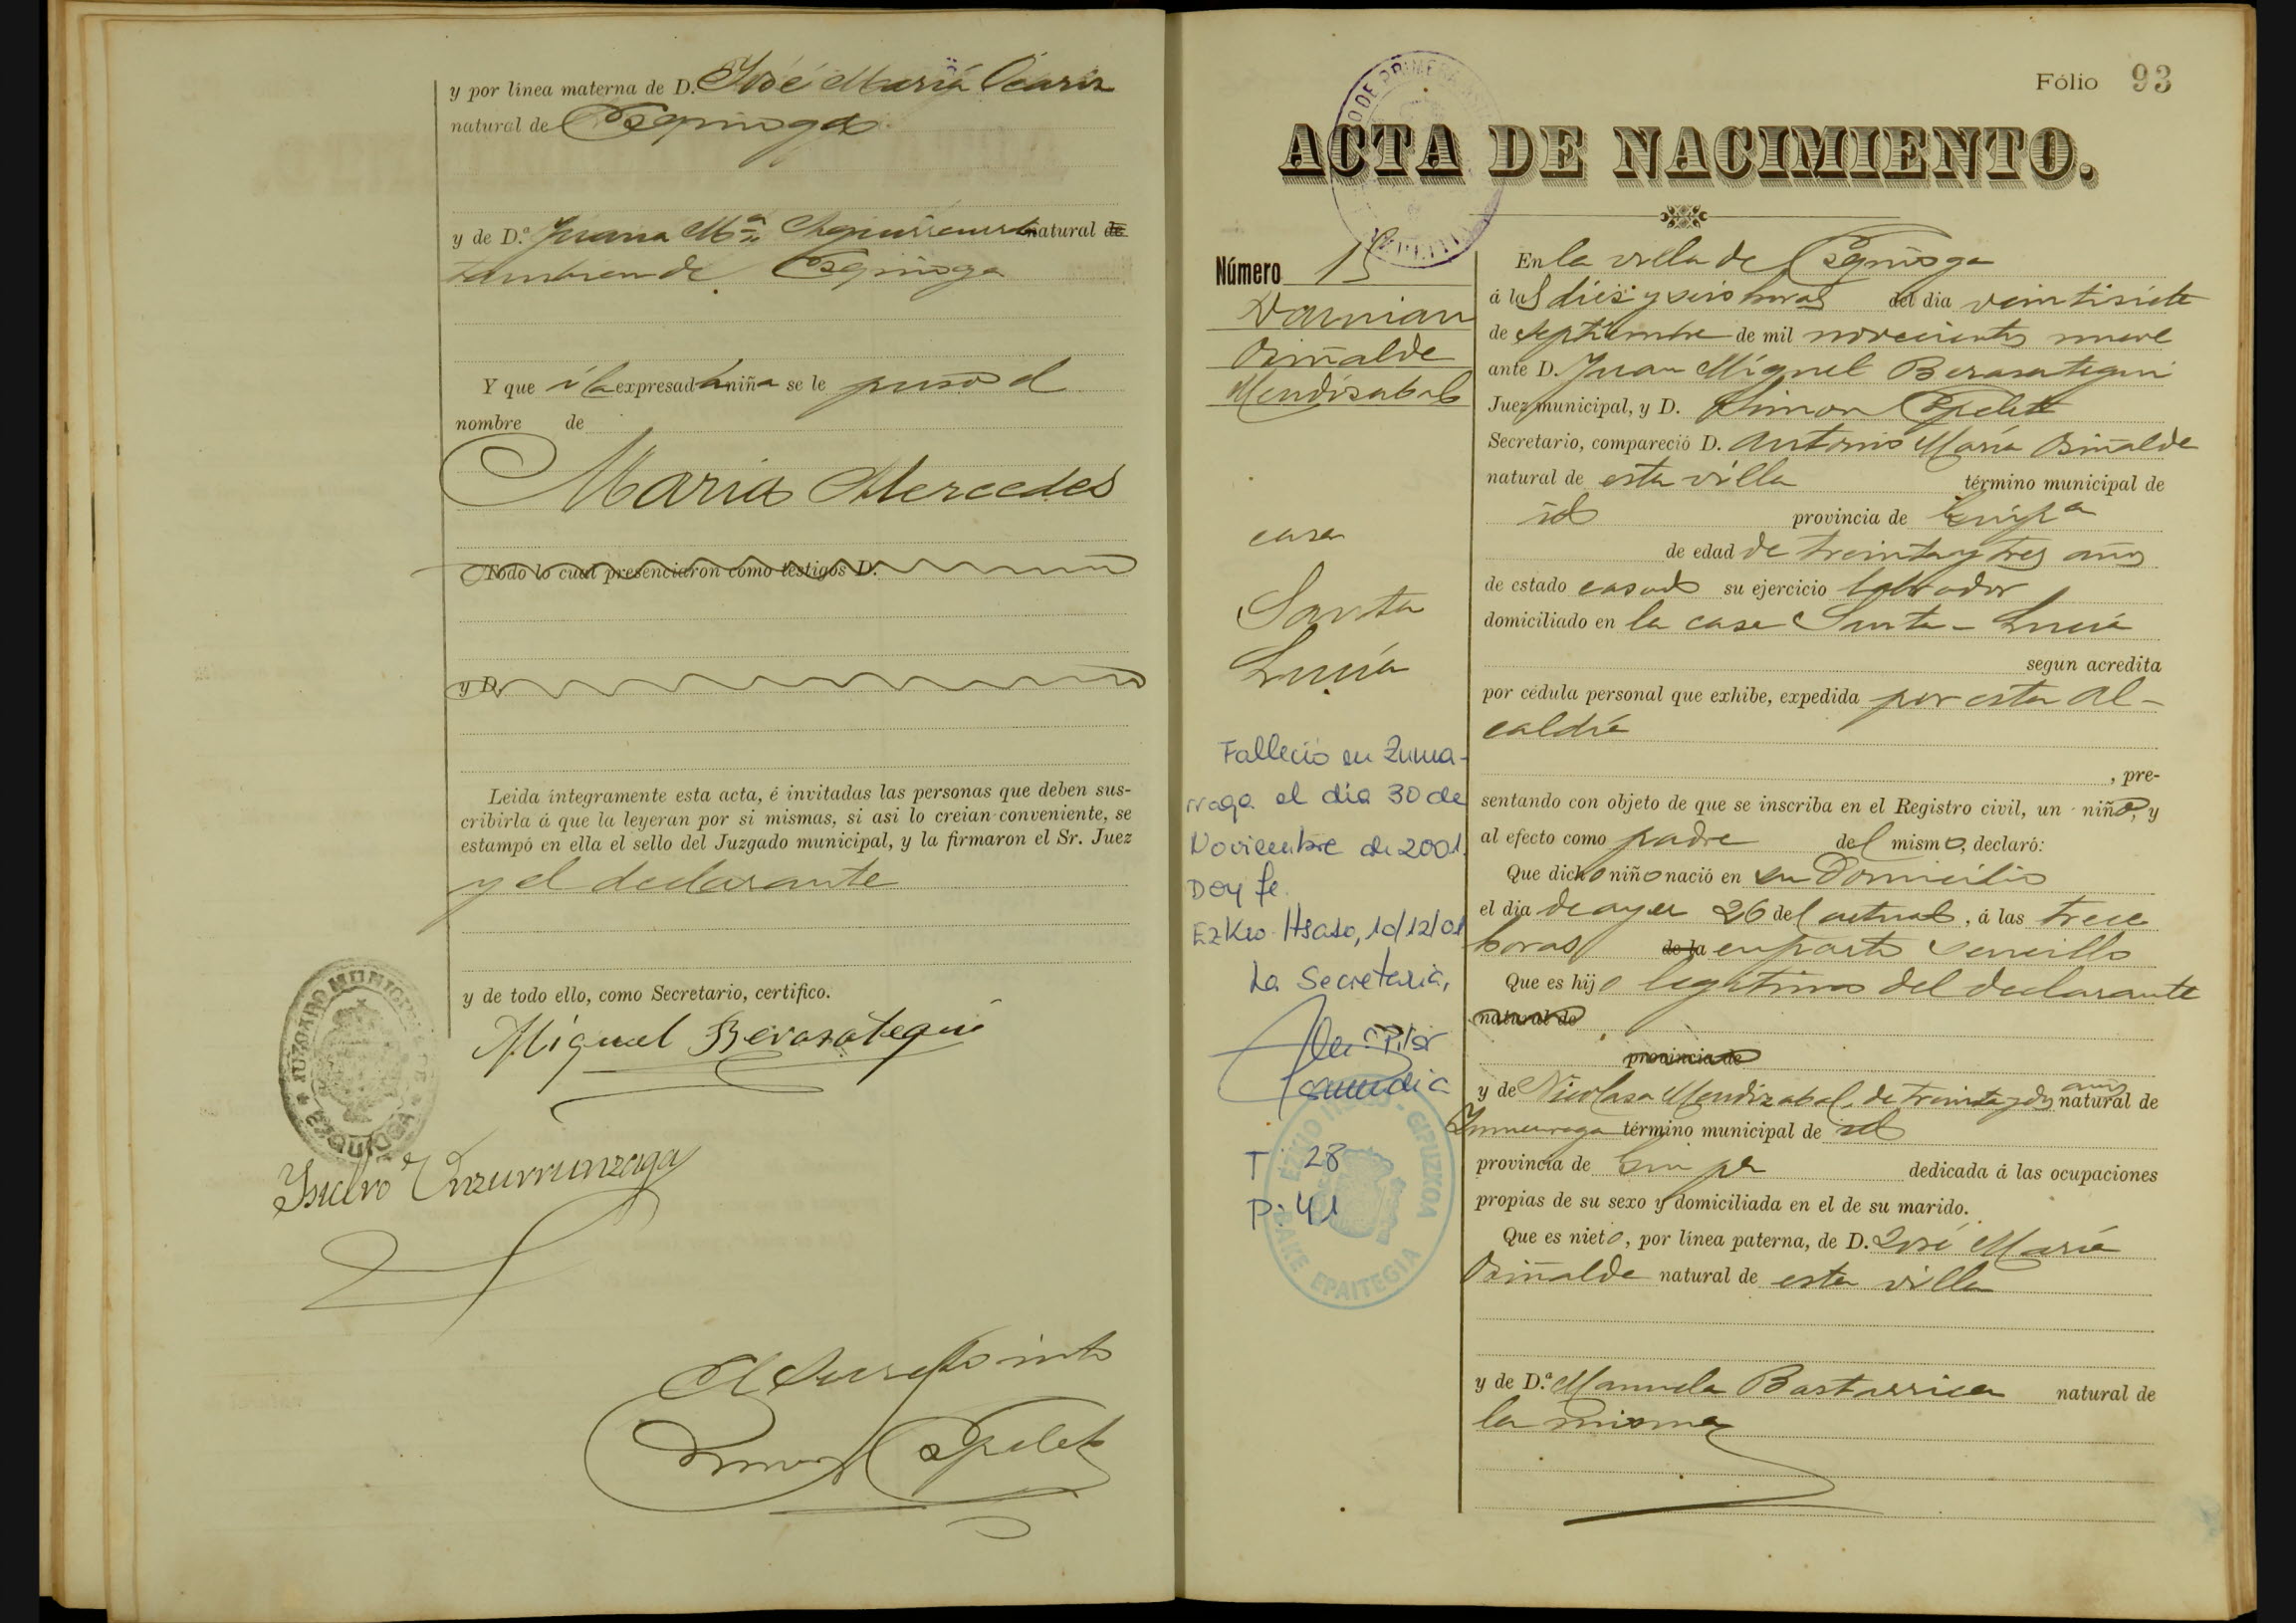 y por línea materna de D. José María Ocariz
natural de Ezquioga
y de D.ª Juana M.ª natural de
tambien de Ezquioga
Y que á la expresada niña se le puso el
nombre de
Maria Mercedes
Todo lo cual presenciaron como testigos D.
y D.
Leida íntegramente esta acta, é invitadas las personas que deben sus-
cribirla á que la leyeran por si mismas, si asi lo creian conveniente, se
estampó en ella el sello del Juzgado municipal, y la firmaron el Sr. Juez
y el declarante
y de todo ello, como Secretario, certifico.
Miguel Berasategui
JUZGADO MUNICIPAL DE
Isidro Unzurrunzaga
El Secretario
Simon Espeleta
Fólio 93
ACTA DE NACIMIENTO.
Número 15
Damian
Oriñalde
Mendizabal
casa
Santa
Lucía
Falleció en Zuma-
rraga el día 30 de
Noviembre de 2001.
Doy fe.
Ezkio Itsaso, 10/12/01
La Secretaria,
T: 28
P: 41
EZKIO ITSASO - GIPUZKOA
BAKE EPAITEGIA
En la villa de Ezquioga
á las diez y seis horas del dia veintisiete
de Septiembre de mil novecientos nueve
ante D. Juan Miguel Berasategui
Juez municipal, y D. Simon Espeleta
Secretario, compareció D. Antonio María Oriñalde
natural de esta villa término municipal de
id provincia de Guip.ª
de edad de treinta y tres años
de estado casado su ejercicio labrador
domiciliado en la casa Santa-Lucía
segun acredita
por cédula personal que exhibe, expedida por esta Al-
caldía
, pre-
sentando con objeto de que se inscriba en el Registro civil, un niño, y
al efecto como padre del mismo, declaró:
Que dicho niño nació en su Domicilio
el dia de ayer 26 del actual, á las trece
horas de la en parto sencillo
Que es hijo legítimo del declarante
natural de
provincia de
y de Nicolasa Mendizabal, de treinta y dos años natural de
Zumarraga término municipal de id
provincia de Guip.ª dedicada á las ocupaciones
propias de su sexo y domiciliada en el de su marido.
Que es nieto, por línea paterna, de D. José María
Oriñalde natural de esta villa
y de D.ª Manuela Bastarrica natural de
la misma